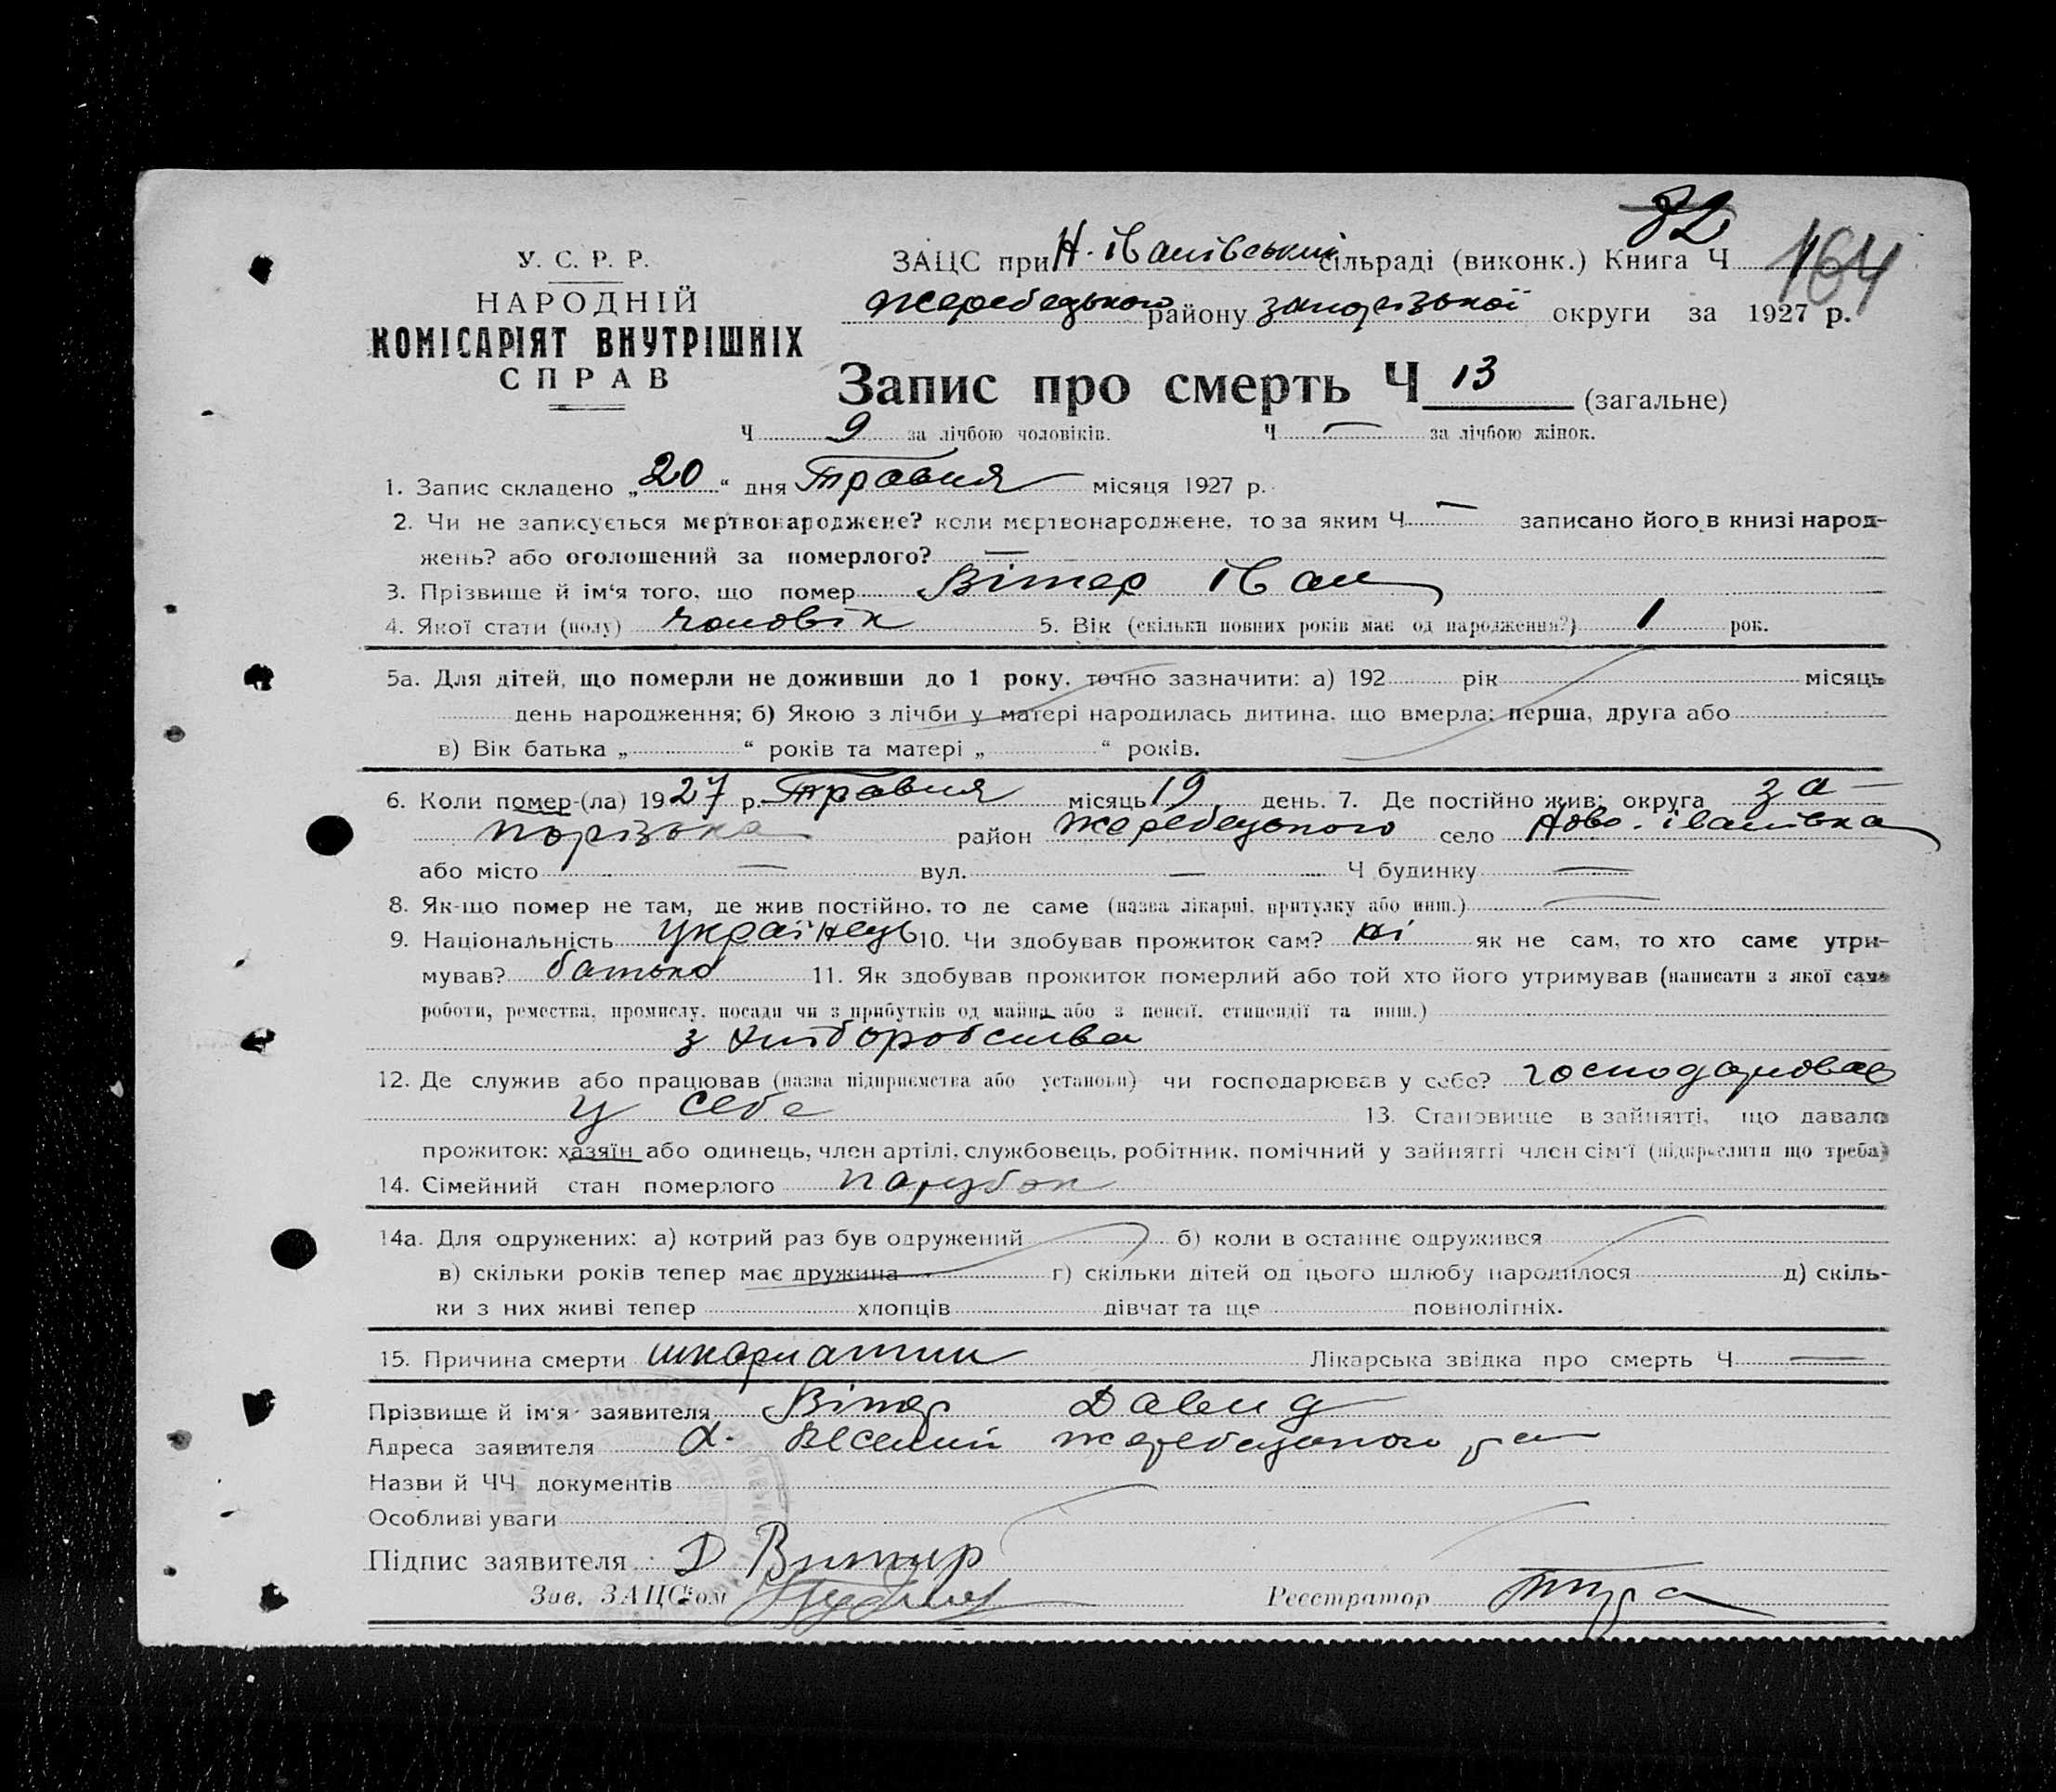 82
164
У. С. Р. Р.
НАРОДНІЙ
КОМІСАРІЯТ ВНУТРІШНІХ
СПРАВ
ЗАЦС при Н. Іванівський сільраді (виконк.) Книга Ч
Жеребецького району запорізької округи за 1927 р.
Запис про смерть Ч 13 (загальне)
Ч 9 за лічбою чоловіків. Ч — за лічбою жінок.
1. Запис складено „20“ дня Травня місяця 1927 р.
2. Чи не записується мертвонароджене? коли мертвонароджене, то за яким Ч — записано його в книзі народ-
жень? або оголошений за померлого? —
3. Прізвище й ім‘я того, що помер Вітер Іван
4. Якої стати (полу) чоловік 5. Вік (скільки повних років має од народження?) 1 рок.
5а. Для дітей, що померли не доживши до 1 року, точно зазначити: а) 192 рік місяць
день народження; б) Якою з лічби у матері народилась дитина, що вмерла: перша, друга або
в) Вік батька „ “ років та матері „ “ років.
6. Коли помер-(ла) 1927 р. Травня місяць 19 день. 7. Де постійно жив: округа за-
порізька район Жеребецького село Ново-Іванівка
або місто — вул. — Ч будинку —
8. Як-що помер не там, де жив постійно, то де саме (назва лікарні, притулку або инш.) —
9. Національність українець 10. Чи здобував прожиток сам? ні як не сам, то хто саме утри-
мував? батько 11. Як здобував прожиток померлий або той хто його утримував (написати з якої саме
роботи, ремества, промислу, посади чи з прибутків од майна або з пенсії, стипендії та инш.)
з хліборобства
12. Де служив або працював (назва підприємства або установи) чи господарював у себе? господарював
у себе 13. Становище в зайнятті, що давало
прожиток: хазяїн або одинець, член артілі, службовець, робітник, помічний у зайнятті член сім‘ї (підкреслити що треба)
14. Сімейний стан померлого парубок
14а. Для одружених: а) котрий раз був одружений б) коли в останнє одружився
в) скільки років тепер має дружина г) скільки дітей од цього шлюбу народилося д) скіль-
ки з них живі тепер хлопців дівчат та ще повнолітніх.
15. Причина смерти шкарлатин Лікарська звідка про смерть Ч —
Прізвище й ім‘я заявителя Вітер Давид
Адреса заявителя х. Веселий Жеребецького ра
Назви й ЧЧ документів
Особливі уваги
Підпис заявителя: Д Витир
Зав. ЗАЦС‘ом Реєстратор